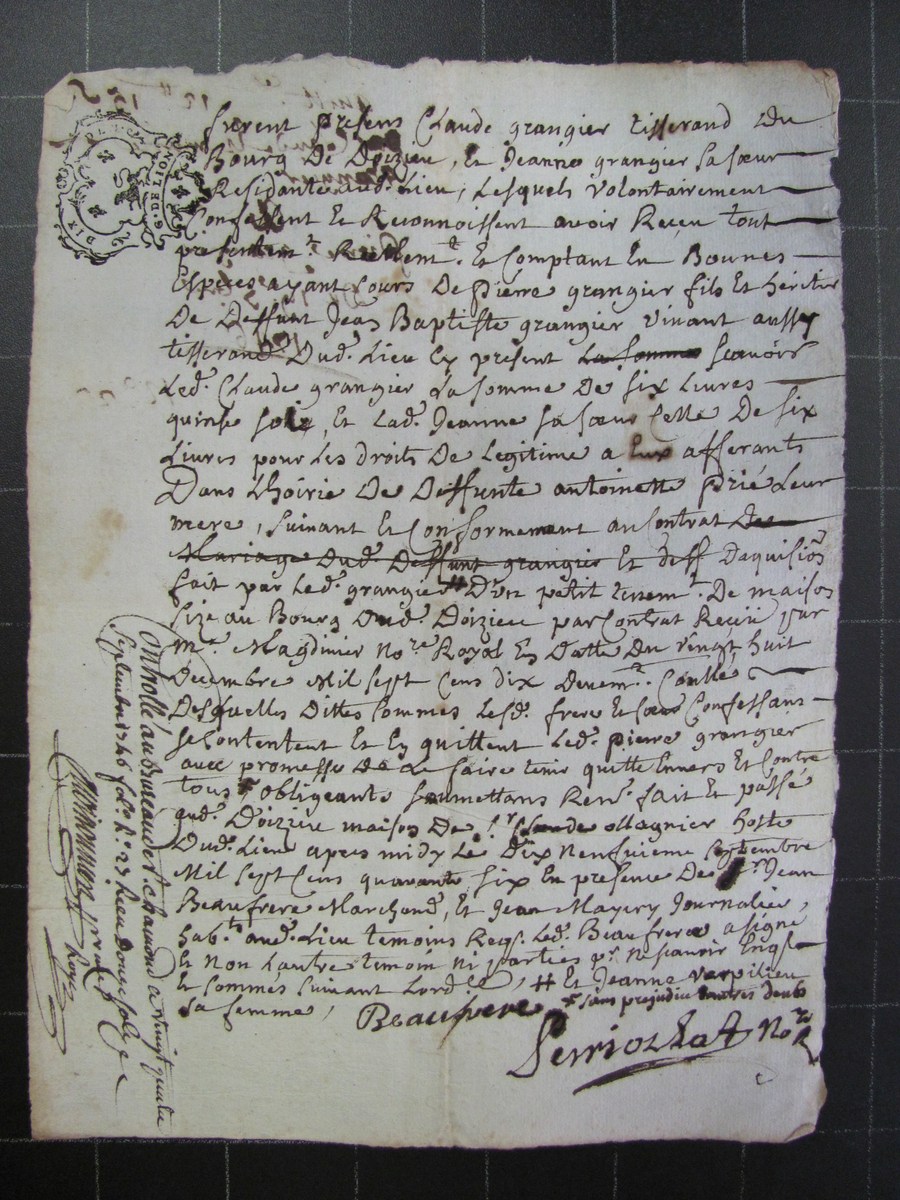 furent presens Claude grangier tisserand Du
Bourg De Doizieu, Et Jeanne grangier sa sœur
Residante aud. Lieu, Lesquels volontairement
Confessent Et Reconnoissent avoir Reçeu tout
presentemt. Reellemt. Et Comptant En Bonnes
Especes ayant Cours De Pierre grangier fils Et heritier
De Deffunt Jean Baptiste grangier vivant aussy
tisserand Dud. Lieu Cy present La somme scavoir
Led. Claude grangier La somme De six Livres
quinse sols, Et Lad. Jeanne sa sœur Celle De six
Livres pour Les droits De Legitime a Eux afferants
Dans Lhoirie De Deffunte antoinette Prié Leur
mere, suivant Et Conformement au Contrat De
Mariage Dud. Deffunt grangier Et Daquision
fait par Led. grangier # D'un petit Tenemt. De maison
size au Bourg Dud. Doizieu par Contrat Reçu par
Me. Magdinier Nore. Royal En Datte Du vingt huit
Decembre Mil sept Cens dix Neuf
Desquelles Dittes sommes Lesd. frere Et sœur Confessans
se Contentent Et En quittent Led. pierre grangier
avec promesse De Le faire tenir quitte Envers Et Contre
tous obligeants soumettans Renr. fait Et passé
aud. Doizieu maison De sr. Claude ollagnier hoste
Dud. Lieu apres midy Le Dix Neufuieme septembre
Mil sept Cens quarante six En presence De sr. Jean
Beaufrere Marchand, Et Jean Mayery Journalier,
habts. aud. Lieu temoins Reqs. Led. Beaufrere a signé
Et Non Lautre temoin Ni parties pr. Ne scavoir Enqs.
Et sommés suivant Lordce. # Et Jeanne verpilieu
sa femme, sans prejudice dautres deubs
Beaufrere
Perriochat Nore. R
Controllé au Bureau de St chamond a vingt quatre
septembre 1746 fo. ro. 23 Reçu Douze sols
DE LION